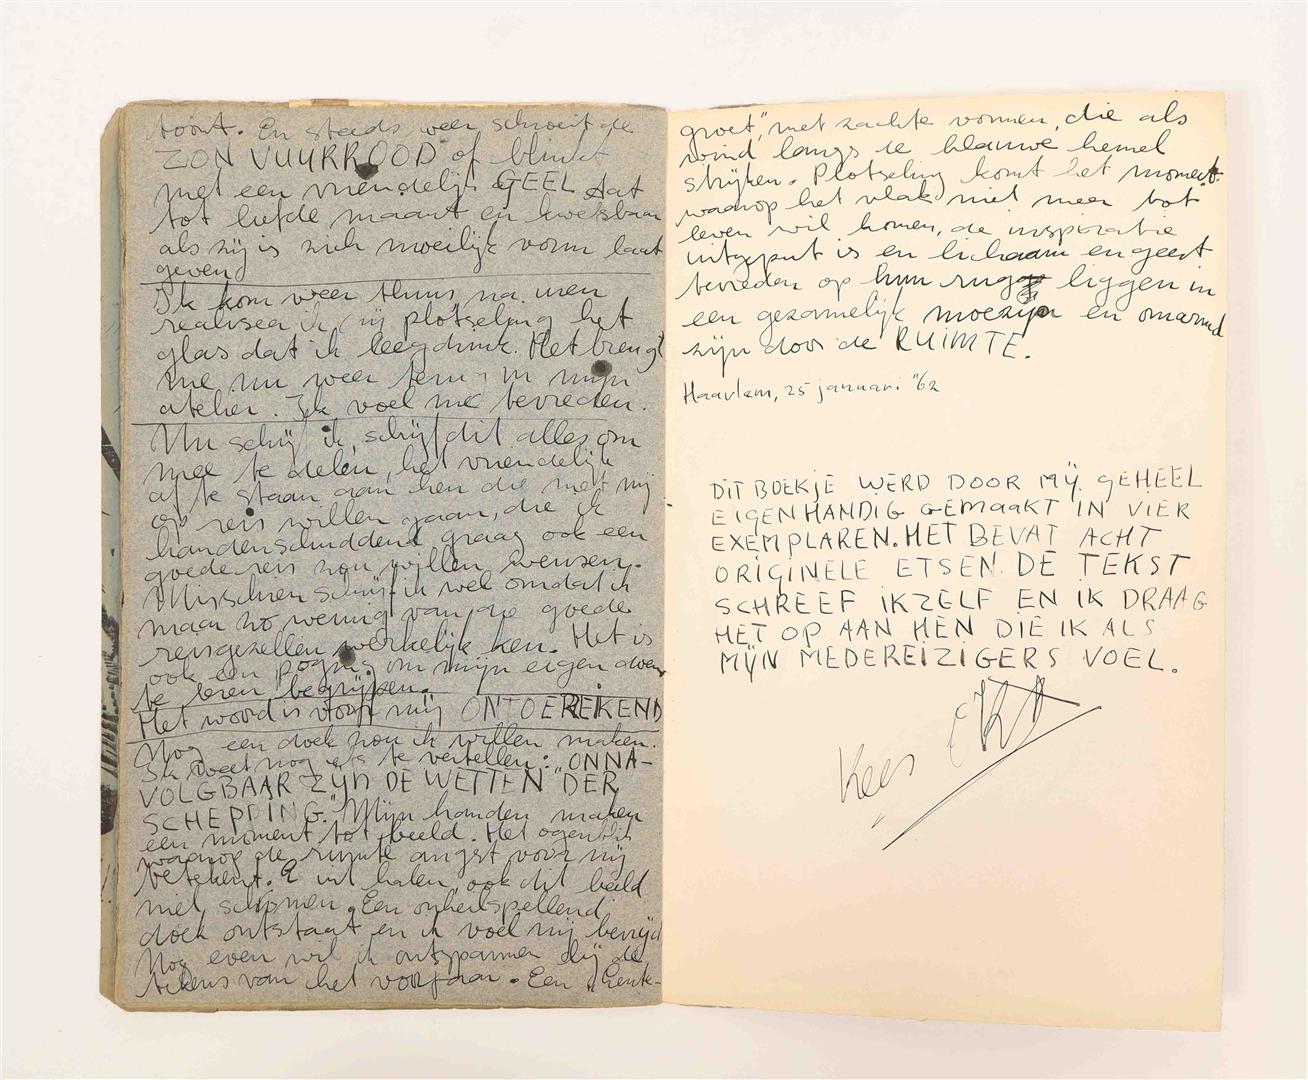 toont. En steeds weer schroeit de
ZON VUURROOD of blinkt
met een vriendelijk GEEL dat
tot liefde maant en kwetsbaar
als zij is zich moeilijk vorm laat
geven
Ik kom weer thuis na uren
realiseer ik mij plotseling het
glas dat ik leegdrink. Het brengt
me nu weer terug in mijn
atelier. Ik voel me tevreden.
Nu schrijf ik, schrijf dit alles om
mee te delen, het vriendelijk
af te staan aan hen die met mij
op reis willen gaan, die ik
handenschuddend graag ook een
goede reis zou willen wensen.
Misschien schrijf ik wel omdat ik
maar zo weinig van die goede
reisgezellen werkelijk ken. Het is
ook een poging om mijn eigen doen
te leren begrijpen.
Het woord is voor mij ONTOEREIKEND
Nog een doek zou ik willen maken.
Ik weet nog iets te vertellen: "ONNA-
VOLGBAAR ZIJN DE WETTEN DER
SCHEPPING." Mijn handen maken
een moment tot beeld. Het ogenblik
waarop de ruimte angst voor mij
betekent. halen ook dit beeld
met Een onheilspellend
doek ontstaat en ik voel mij bevrijd
Nog even wil ik ontspannen bij de
tekens van het voorjaar. Een "Lente-
groet", met zachte vormen, die als
wind langs de blauwe hemel
strijken. Plotseling komt het moment
waarop het vlak niet meer tot
leven wil komen, de inspiratie
uitgeput is en lichaam en geest
tevreden op hun rug liggen in
een gezamelijk moezijn en omarmd
zijn door de RUIMTE.
Haarlem, 25 januari '62
DIT BOEKJE WERD DOOR MIJ GEHEEL
EIGENHANDIG GEMAAKT IN VIER
EXEMPLAREN. HET BEVAT ACHT
ORIGINELE ETSEN. DE TEKST
SCHREEF IKZELF EN IK DRAAG
HET OP AAN HEN DIE IK ALS
MIJN MEDEREIZIGERS VOEL.
Kees Okx